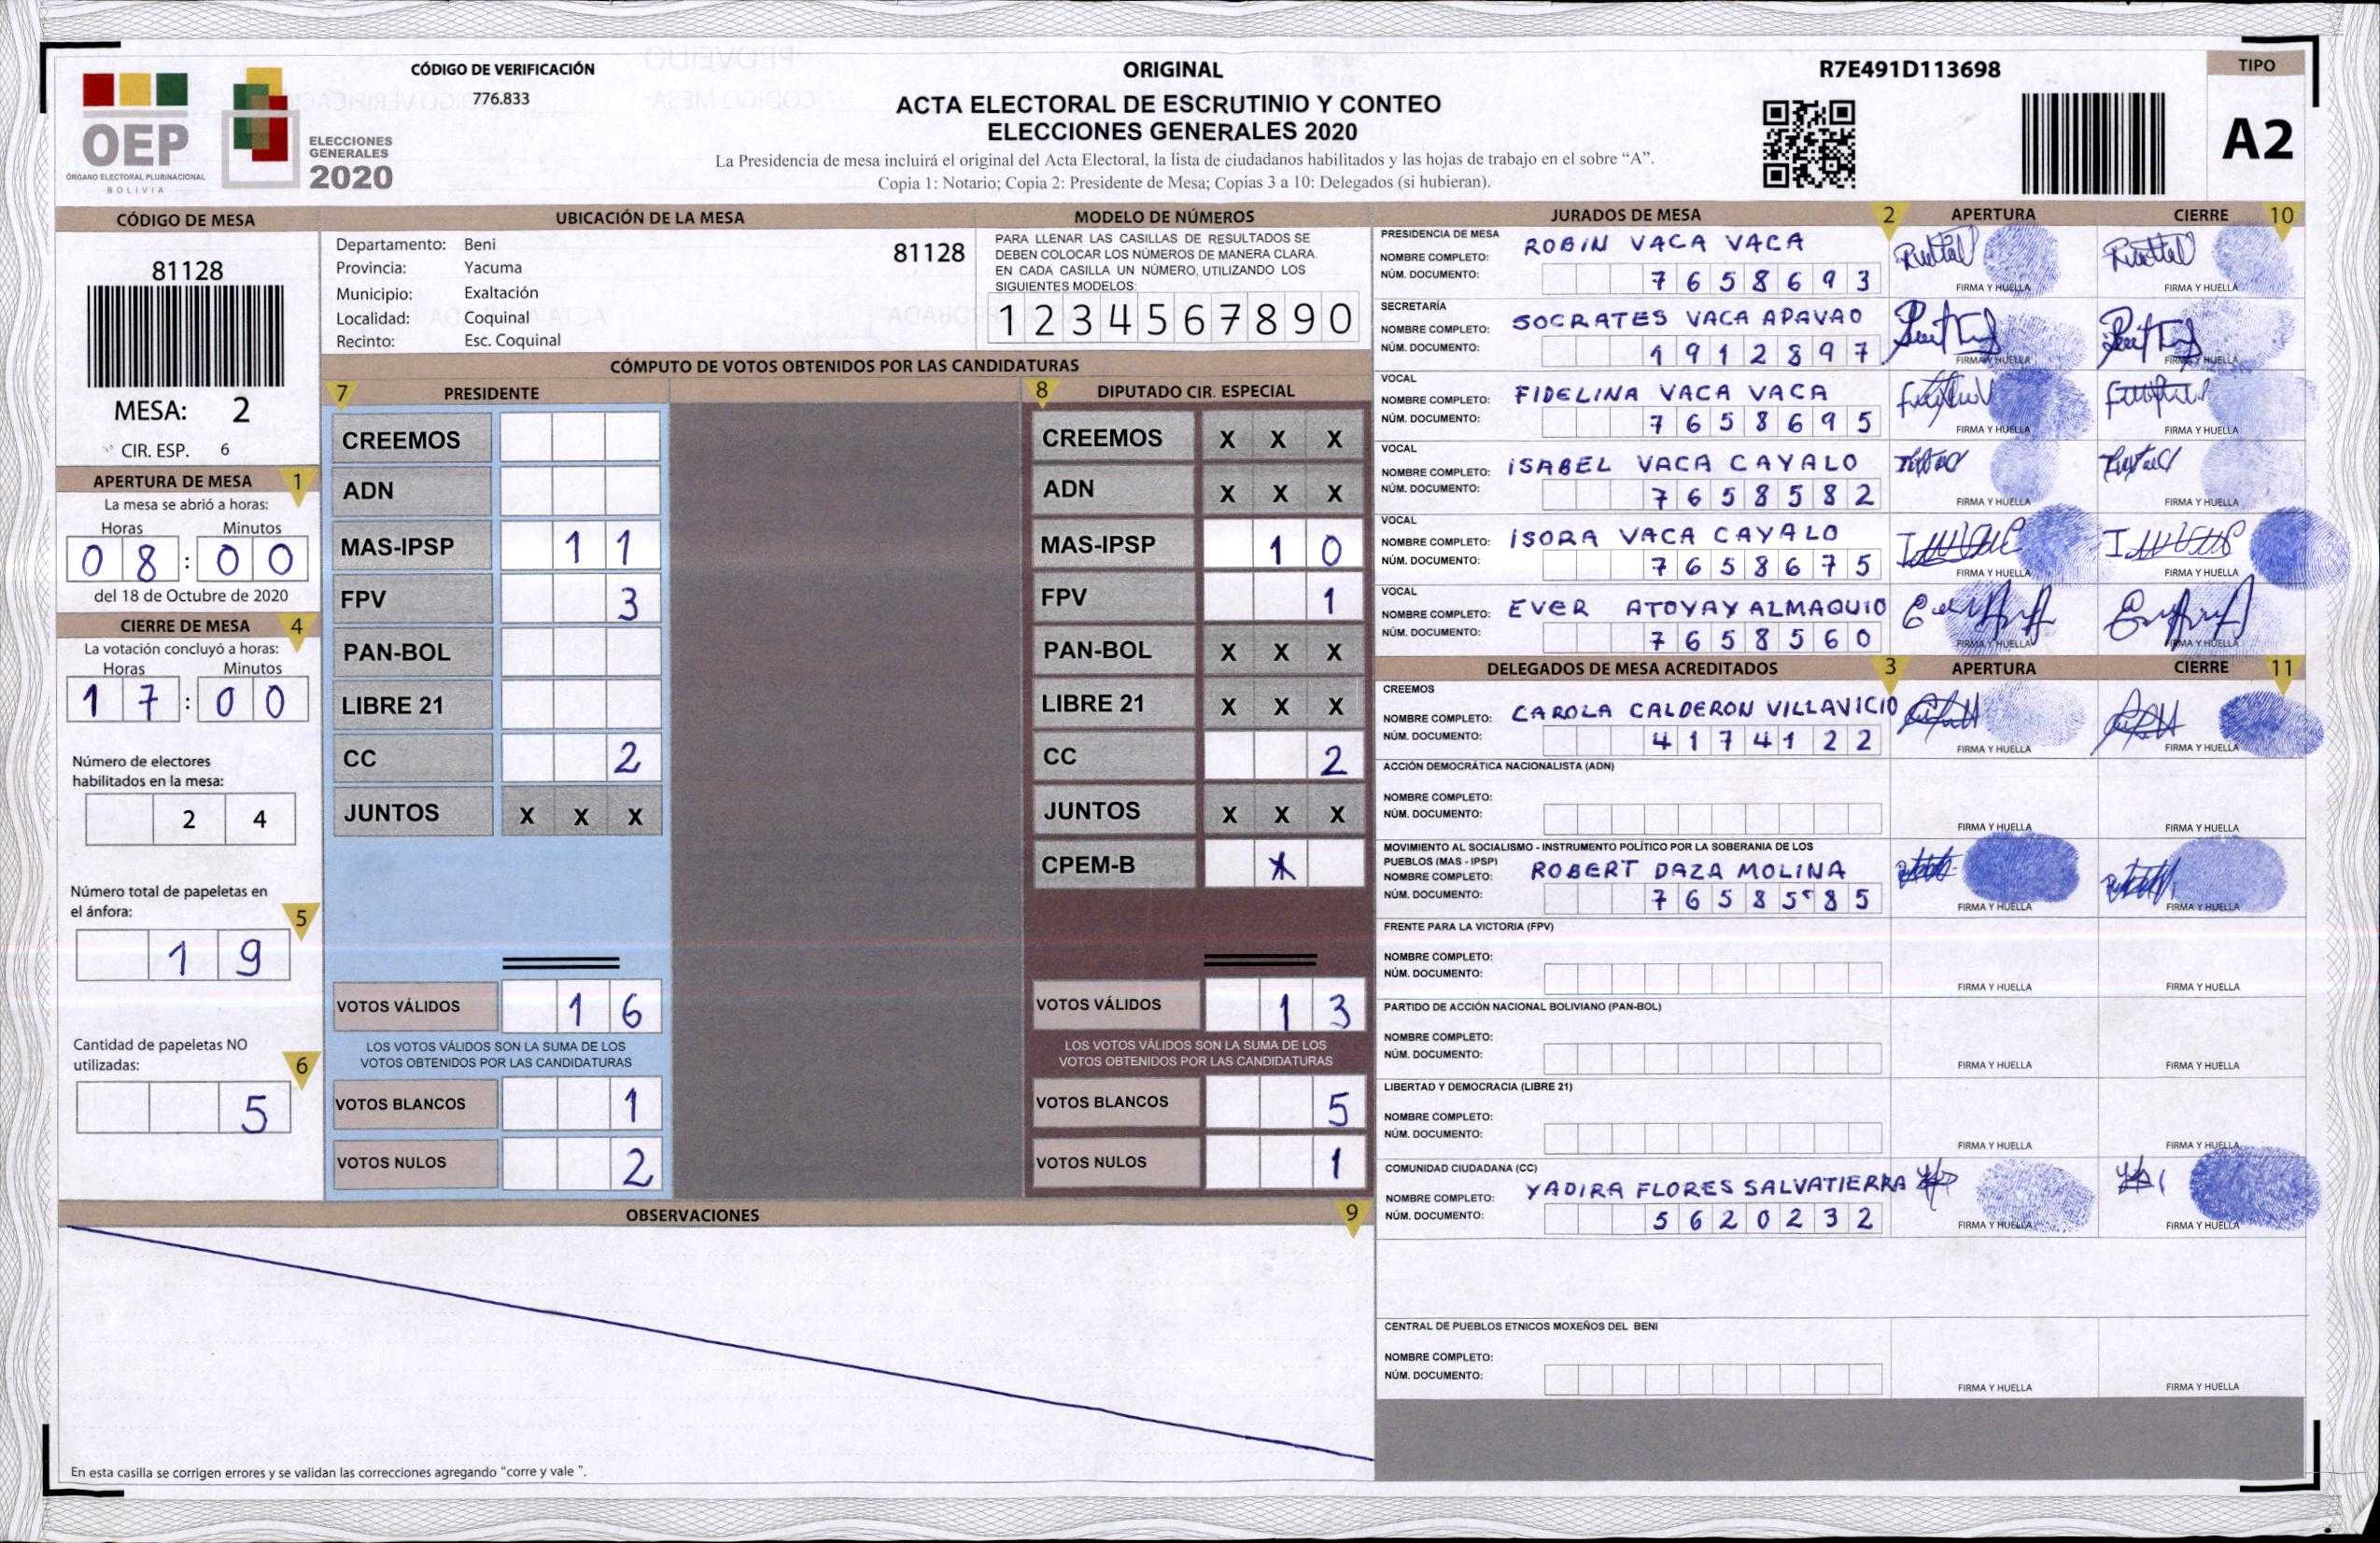 CÓDIGO DE VERIFICACIÓN
776.833
OEP
ÓRGANO ELECTORAL PLURINACIONAL
BOLIVIA
ELECCIONES
GENERALES
2020
ORIGINAL
ACTA ELECTORAL DE ESCRUTINIO Y CONTEO
ELECCIONES GENERALES 2020
La Presidencia de mesa incluirá el original del Acta Electoral, la lista de ciudadanos habilitados y las hojas de trabajo en el sobre “A”.
Copia 1: Notario; Copia 2: Presidente de Mesa; Copias 3 a 10: Delegados (si hubieran).
R7E491D113698
TIPO
A2
CÓDIGO DE MESA
81128
MESA: 2
CIR. ESP. 6
UBICACIÓN DE LA MESA
Departamento: Beni
81128
Provincia: Yacuma
Municipio: Exaltación
Localidad: Coquinal
Recinto: Esc. Coquinal
MODELO DE NÚMEROS
PARA LLENAR LAS CASILLAS DE RESULTADOS SE
DEBEN COLOCAR LOS NÚMEROS DE MANERA CLARA.
EN CADA CASILLA UN NÚMERO, UTILIZANDO LOS
SIGUIENTES MODELOS:
1 2 3 4 5 6 7 8 9 0
APERTURA DE MESA 1
La mesa se abrió a horas:
Horas Minutos
0 8 : 0 0
del 18 de Octubre de 2020
CIERRE DE MESA 4
La votación concluyó a horas:
Horas Minutos
1 7 : 0 0
Número de electores
habilitados en la mesa:
2 4
Número total de papeletas en
el ánfora: 5
1 9
Cantidad de papeletas NO
utilizadas: 6
5
CÓMPUTO DE VOTOS OBTENIDOS POR LAS CANDIDATURAS
7 PRESIDENTE
CREEMOS
ADN
MAS-IPSP 1 1
FPV 3
PAN-BOL
LIBRE 21
CC 2
JUNTOS X X X
VOTOS VÁLIDOS 1 6
LOS VOTOS VÁLIDOS SON LA SUMA DE LOS
VOTOS OBTENIDOS POR LAS CANDIDATURAS
VOTOS BLANCOS 1
VOTOS NULOS 2
8 DIPUTADO CIR. ESPECIAL
CREEMOS X X X
ADN X X X
MAS-IPSP 1 0
FPV 1
PAN-BOL X X X
LIBRE 21 X X X
CC 2
JUNTOS X X X
CPEM-B
VOTOS VÁLIDOS 1 3
LOS VOTOS VÁLIDOS SON LA SUMA DE LOS
VOTOS OBTENIDOS POR LAS CANDIDATURAS
VOTOS BLANCOS 5
VOTOS NULOS 1
OBSERVACIONES 9
En esta casilla se corrigen errores y se validan las correcciones agregando “corre y vale ”.
JURADOS DE MESA 2 APERTURA CIERRE 10
PRESIDENCIA DE MESA
NOMBRE COMPLETO: ROBIN VACA VACA
NÚM. DOCUMENTO: 7 6 5 8 6 9 3
FIRMA Y HUELLA FIRMA Y HUELLA
SECRETARÍA
NOMBRE COMPLETO: SOCRATES VACA APAVAO
NÚM. DOCUMENTO: 1 9 1 2 8 9 7
FIRMA Y HUELLA FIRMA Y HUELLA
VOCAL
NOMBRE COMPLETO: FIDELINA VACA VACA
NÚM. DOCUMENTO: 7 6 5 8 6 9 5
FIRMA Y HUELLA FIRMA Y HUELLA
VOCAL
NOMBRE COMPLETO: ISABEL VACA CAYALO
NÚM. DOCUMENTO: 7 6 5 8 5 8 2
FIRMA Y HUELLA FIRMA Y HUELLA
VOCAL
NOMBRE COMPLETO: ISORA VACA CAYALO
NÚM. DOCUMENTO: 7 6 5 8 6 7 5
FIRMA Y HUELLA FIRMA Y HUELLA
VOCAL
NOMBRE COMPLETO: EVER ATOYAY ALMAQUIO
NÚM. DOCUMENTO: 7 6 5 8 5 6 0
FIRMA Y HUELLA FIRMA Y HUELLA
DELEGADOS DE MESA ACREDITADOS 3 APERTURA CIERRE 11
CREEMOS
NOMBRE COMPLETO: CAROLA CALDERON VILLAVICIO
NÚM. DOCUMENTO: 4 1 7 4 1 2 2
FIRMA Y HUELLA FIRMA Y HUELLA
ACCIÓN DEMOCRÁTICA NACIONALISTA (ADN)
NOMBRE COMPLETO:
NÚM. DOCUMENTO:
FIRMA Y HUELLA FIRMA Y HUELLA
MOVIMIENTO AL SOCIALISMO - INSTRUMENTO POLÍTICO POR LA SOBERANIA DE LOS
PUEBLOS (MAS - IPSP)
NOMBRE COMPLETO: ROBERT DAZA MOLINA
NÚM. DOCUMENTO: 7 6 5 8 5 8 5
FIRMA Y HUELLA FIRMA Y HUELLA
FRENTE PARA LA VICTORIA (FPV)
NOMBRE COMPLETO:
NÚM. DOCUMENTO:
FIRMA Y HUELLA FIRMA Y HUELLA
PARTIDO DE ACCIÓN NACIONAL BOLIVIANO (PAN-BOL)
NOMBRE COMPLETO:
NÚM. DOCUMENTO:
FIRMA Y HUELLA FIRMA Y HUELLA
LIBERTAD Y DEMOCRACIA (LIBRE 21)
NOMBRE COMPLETO:
NÚM. DOCUMENTO:
FIRMA Y HUELLA FIRMA Y HUELLA
COMUNIDAD CIUDADANA (CC)
NOMBRE COMPLETO: YADIRA FLORES SALVATIERRA
NÚM. DOCUMENTO: 5 6 2 0 2 3 2
FIRMA Y HUELLA FIRMA Y HUELLA
CENTRAL DE PUEBLOS ETNICOS MOXEÑOS DEL BENI
NOMBRE COMPLETO:
NÚM. DOCUMENTO:
FIRMA Y HUELLA FIRMA Y HUELLA